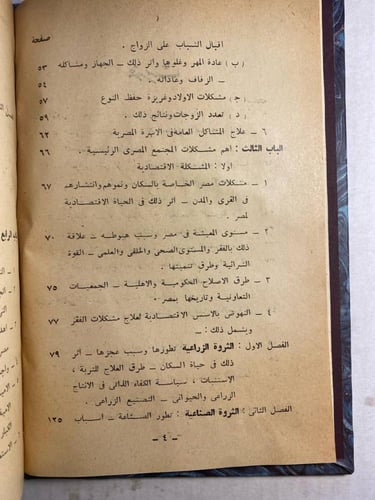 صفحة
اقبال الشباب على الزواج .
( ب ) عادة المهر وغلوها واثر ذلك ــ الجهاز ومشاكله ٥٣
ــ الزفاف وعاداته . ٥٤
( ج ) مشكلات الاولاد وغريزة حفظ النوع ٥٧
( د ) تعدد الزوجات ونتائج ذلك . ٥٩
٦ ــ علاج المشاكل العامة فى الاسرة المصرية ٦٢
الباب الثالث : اهم مشكلات المجتمع المصرى الرئيسية . ٦٦
اولا : المشكلة الاقتصادية
١ ــ مشكلات مصر الخاصة بالسكان ونموهم وانتشارهم ٦٧
فى القرى والمدن ــ اثر ذلك فى الحياة الاقتصادية
لمصر .
٢ ــ مستوى المعيشة فى مصر وسبب هبوطه ــ علاقة ٧٠
ذلك بالفقر والمستوى الصحى والخلقى والعلمى ــ القوة
الشرائية وطرق تنميتها .
٣ ــ طرق الاصلاح الحكومية والاهلية ــ الجمعيات ٧٥
التعاونية وتاريخها بمصر .
٤ ــ النهوض بالاسس الاقتصادية لعلاج مشكلات الفقر ٧٧
ويشمل ذلك :ــ
الفصل الاول : الثروة الزراعية تطورها وسبب عجزها ــ اثر ٧٩
ذلك فى حياة السكان ــ طرق العلاج للتربة ،
الاستنبات ، سياسة الكفاء الذاتى فى الانتاج
الزراعى والحيوانى ــ التصنيع الزراعى .
الفصل الثانى : الثروة الصناعية : تطور الصناعة ــ اسباب ١٢٥
ــ ٤ ــ